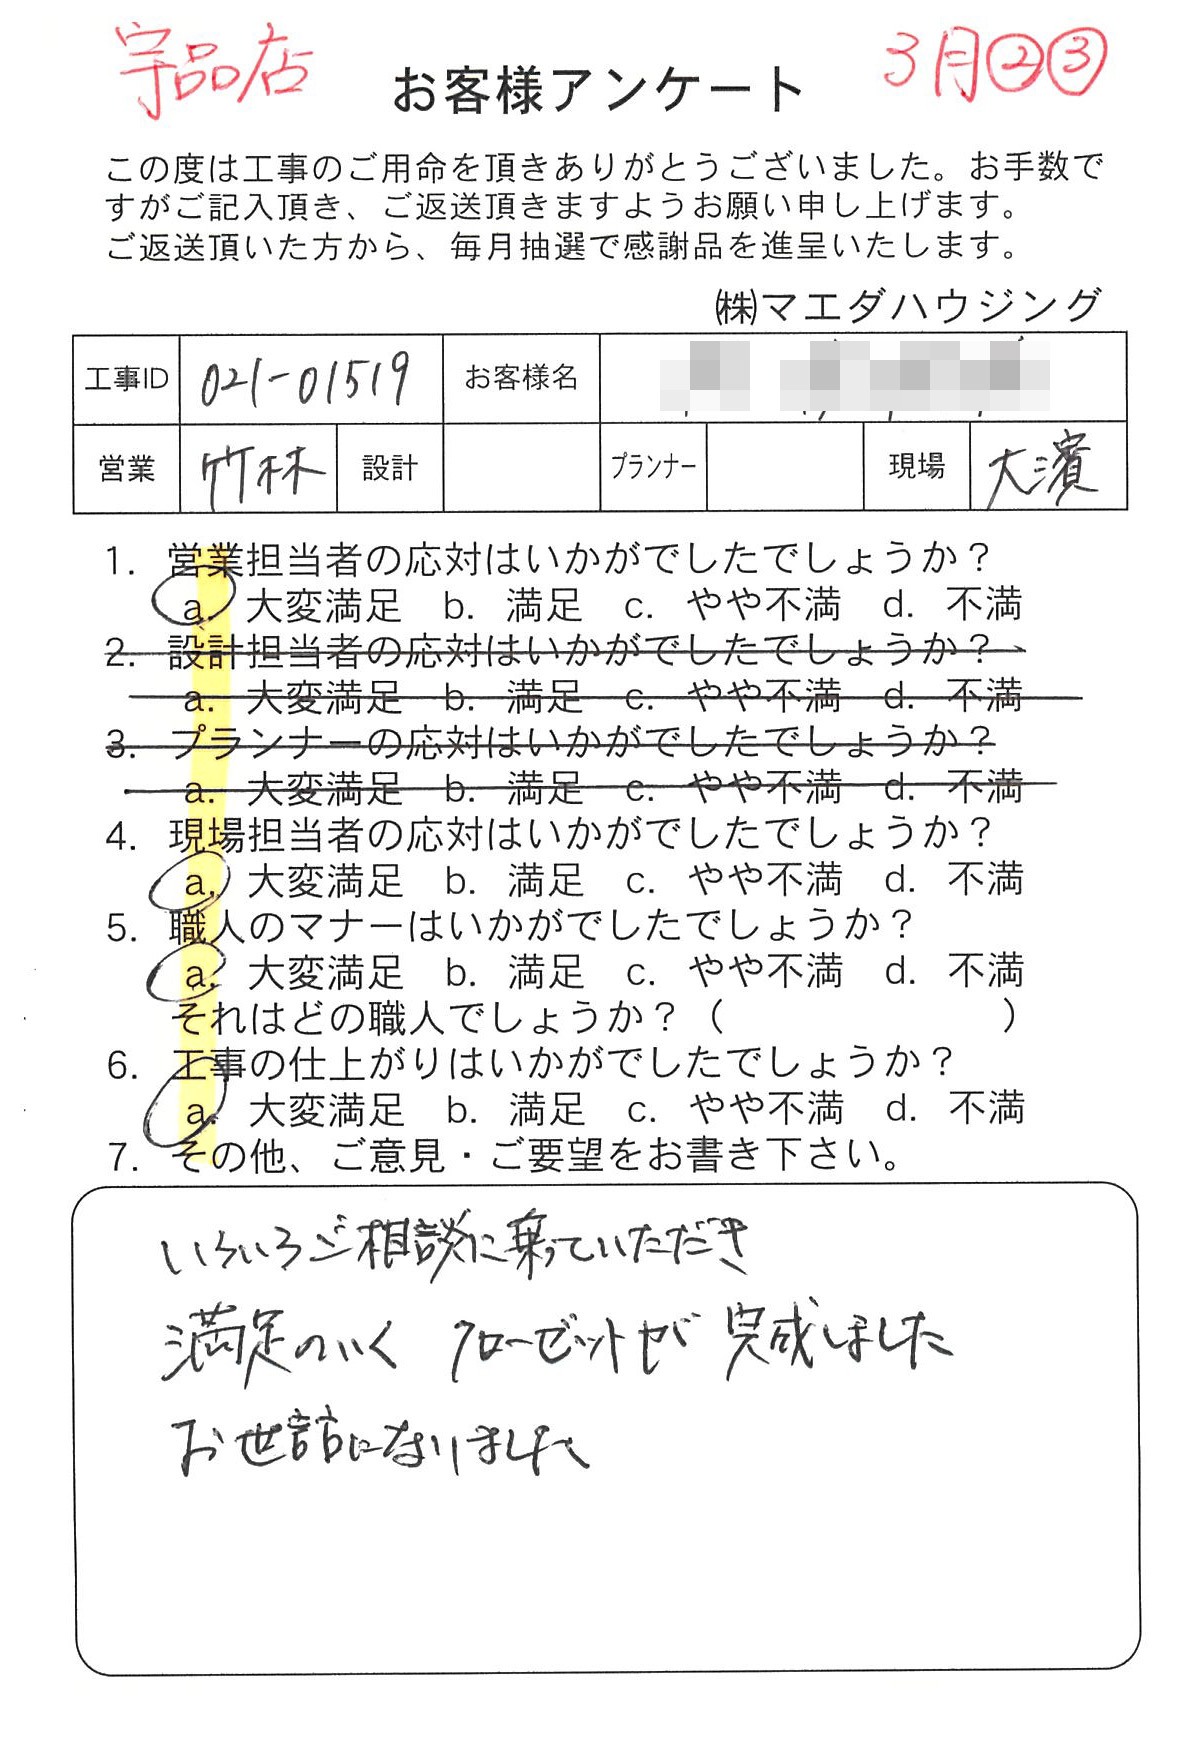 宇品店
3月②③
お客様アンケート
この度は工事のご用命を頂きありがとうございました。お手数で
すがご記入頂き、ご返送頂きますようお願い申し上げます。
ご返送頂いた方から、毎月抽選で感謝品を進呈いたします。
㈱マエダハウジング
工事ID 021-01519 お客様名
営業 竹林 設計 プランナー 現場 大濱
1. 営業担当者の応対はいかがでしたでしょうか？
a. 大変満足 b. 満足 c. やや不満 d. 不満
2. 設計担当者の応対はいかがでしたでしょうか？
a. 大変満足 b. 満足 c. やや不満 d. 不満
3. プランナーの応対はいかがでしたでしょうか？
a. 大変満足 b. 満足 c. やや不満 d. 不満
4. 現場担当者の応対はいかがでしたでしょうか？
a. 大変満足 b. 満足 c. やや不満 d. 不満
5. 職人のマナーはいかがでしたでしょうか？
a. 大変満足 b. 満足 c. やや不満 d. 不満
それはどの職人でしょうか？（ ）
6. 工事の仕上がりはいかがでしたでしょうか？
a. 大変満足 b. 満足 c. やや不満 d. 不満
7. その他、ご意見・ご要望をお書き下さい。
いろいろご相談に乗っていただき
満足のいく クローゼットが 完成しました
お世話になりました